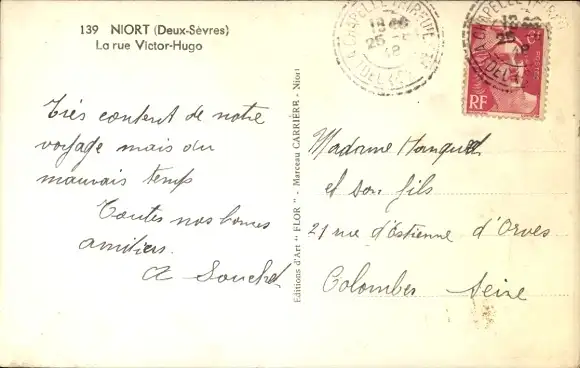 139 NIORT (Deux-Sèvres)
La rue Victor-Hugo
Très content de notre
voyage mais du
mauvais temps
Toutes nos bonnes
amitiés.
A Souchet
Editions d'Art "FLOR" - Marceau CARRIÈRE - Niort
RF
Madame
et son fils
21 rue d'Estienne d'Orves
Colombes Seine